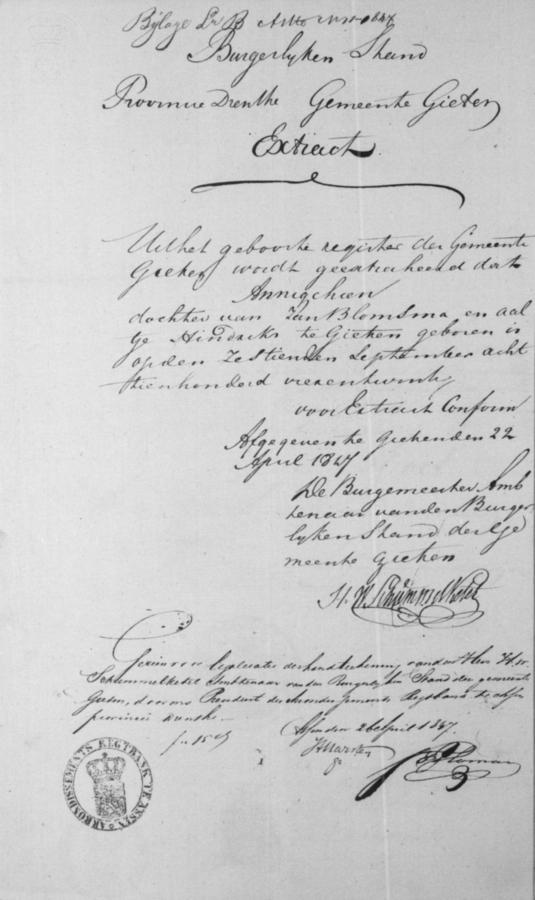 Bylage Lr B
Burgerlyken Stand
Provincie Drenthe Gemeente Gieten
Extract
Uit het geboorte register der Gemeente
Gieten wordt geextraheerd dat
Annigchien
dochter van Jan Blomsma en aal
tje Hindriks te Gieten geboren is
op den Zestienden September acht
tienhonderd vierentwintig
voor Extract Conform
Afgegeven te Gieten den 22
April 1847
De Burgemeester Amb
tenaar van den Burger
lyken Stand der Ge
meente Gieten
H. W. Schummelketel
Gezien voor legalisatie der handteekening van den Heer H. W.
Schummelketel Ambtenaar van den Burgerlyken Stand der gemeente
Gieten, door ons President der Arrondissements Regtbank te Assen
provincie Drenthe.
Assen den 26 April 1847.
ARRONDISSEMENTS REGTBANK TE ASSEN